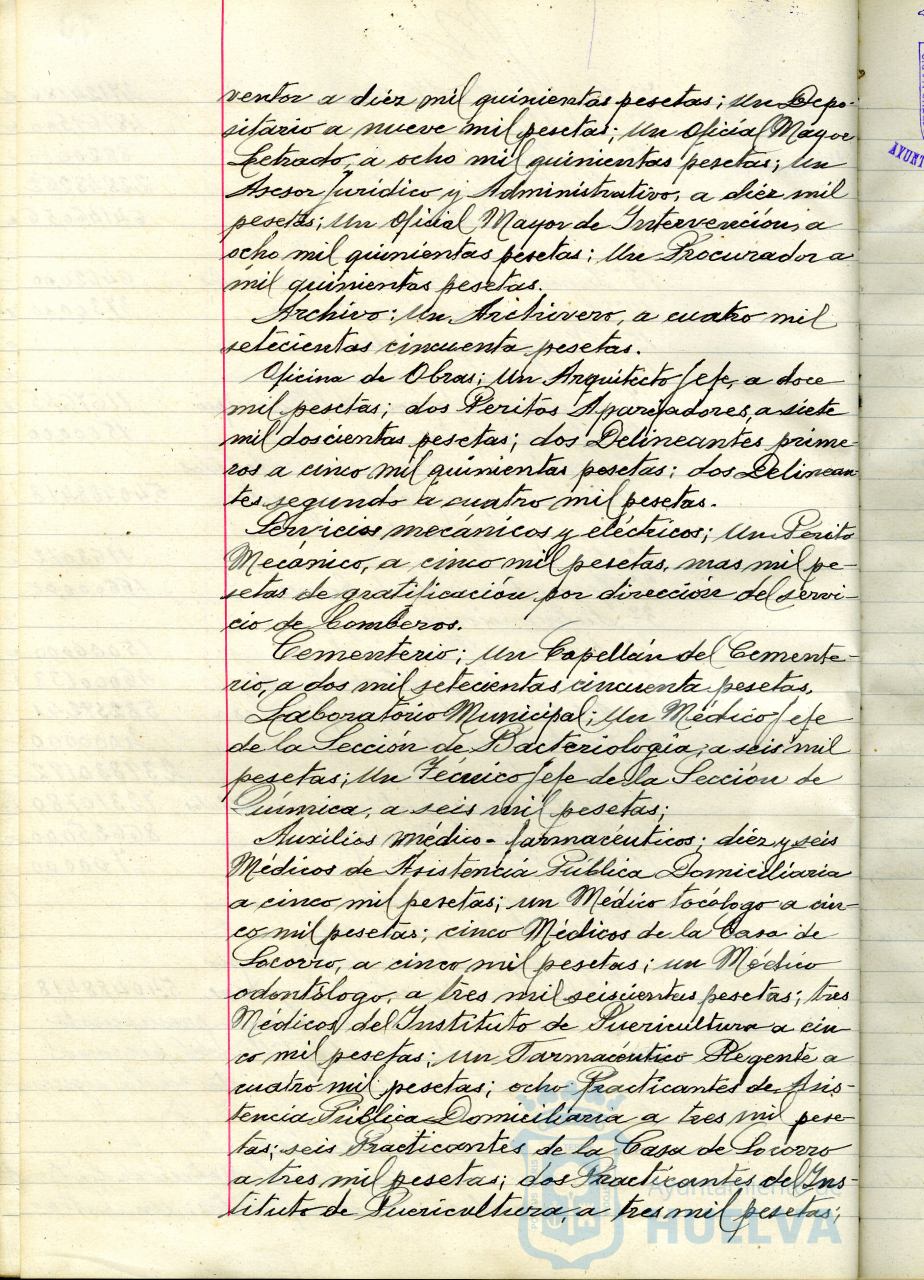 ventor a diéz mil quinientas pesetas; Un Depo-
sitario a nueve mil pesetas; Un Oficial Mayor
Letrado, a ocho mil quinientas pesetas; Un
Asesor Jurídico y Administrativo, a diéz mil
pesetas; Un Oficial Mayor de Intervención, a
ocho mil quinientas pesetas; Un Procurador a
mil quinientas pesetas.
Archivo: Un Archivero, a cuatro mil
setecientas cincuenta pesetas.
Oficina de Obras; Un Arquitecto Jefe, a doce
mil pesetas; dos Peritos Aparejadores, a siete
mil doscientas pesetas; dos Delineantes prime-
ros a cinco mil quinientas pesetas; dos Delinean-
tes segundo á cuatro mil pesetas.
Servicios mecánicos y eléctricos; Un Perito
Mecánico, a cinco mil pesetas, mas mil pe-
setas de gratificación por dirección del servi-
cio de Bomberos.
Cementerio; Un Capellán del Cemente-
rio, a dos mil setecientas cincuenta pesetas.
Laboratorio Municipal; Un Médico Jefe
de la Sección de Bacteriología, a seis mil
pesetas; Un Técnico Jefe de la Sección de
Química, a seis mil pesetas;
Auxilios médico-farmacéuticos; diéz y seis
Médicos de Asistencia Pública Domiciliaria
a cinco mil pesetas; un Médico tocólogo a cin-
co mil pesetas; cinco Médicos de la Casa de
Socorro, a cinco mil pesetas; un Médico
odontólogo, a tres mil seiscientas pesetas; tres
Médicos del Instituto de Puericultura a cin
co mil pesetas; un Farmacéutico Regente a
cuatro mil pesetas; ocho Practicantes de Asis-
tencia Pública Domiciliaria a tres mil pese-
tas; seis Practicantes de la Casa de Socorro
a tres mil pesetas; dos Practicantes del Ins-
tituto de Puericultura, a tres mil pesetas;
Ayuntamiento de
HUELVA
AYUNT